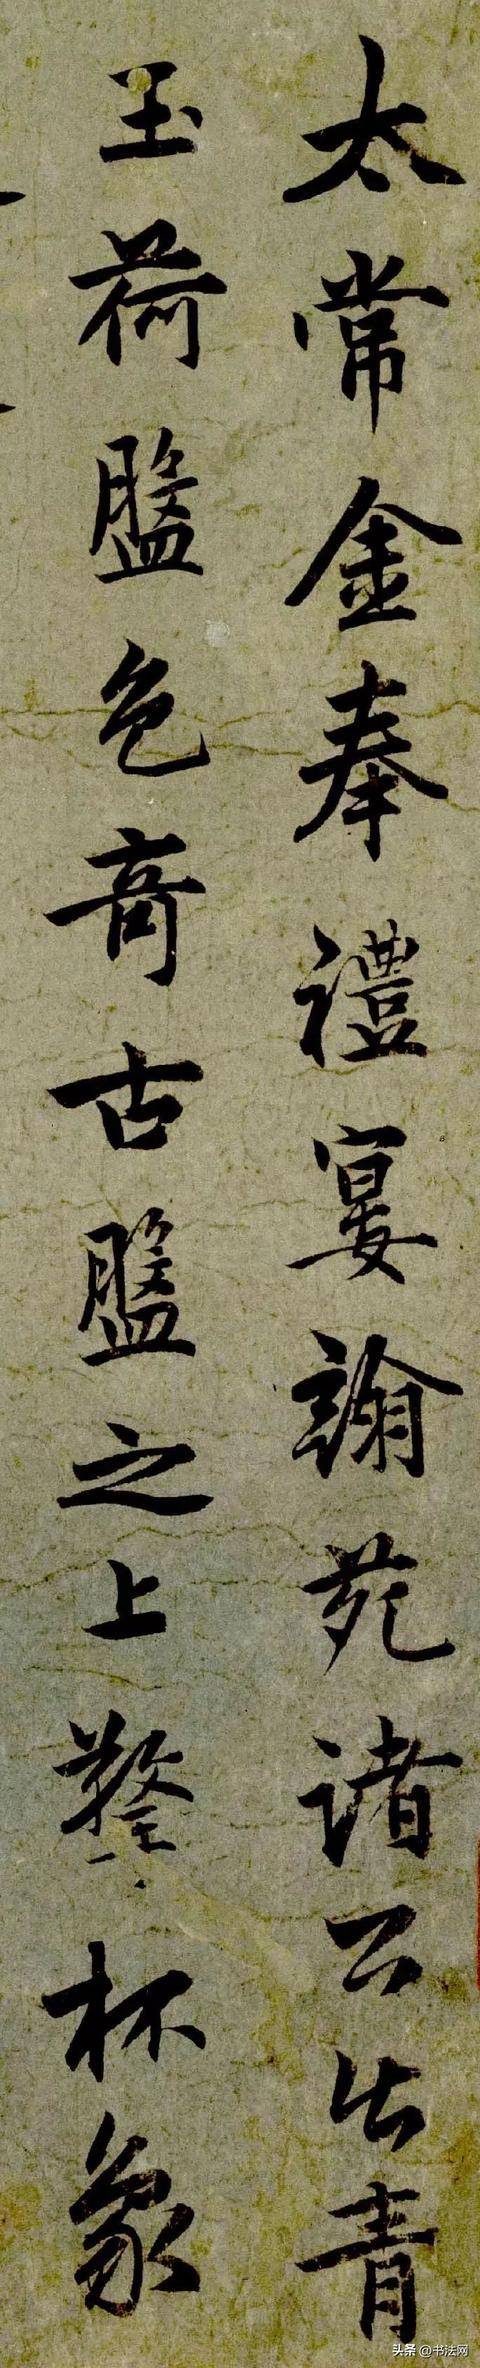 太常金奉禮宴翰苑諸公出青
玉荷盤色奇古盤之上杯象
头条 @书法网